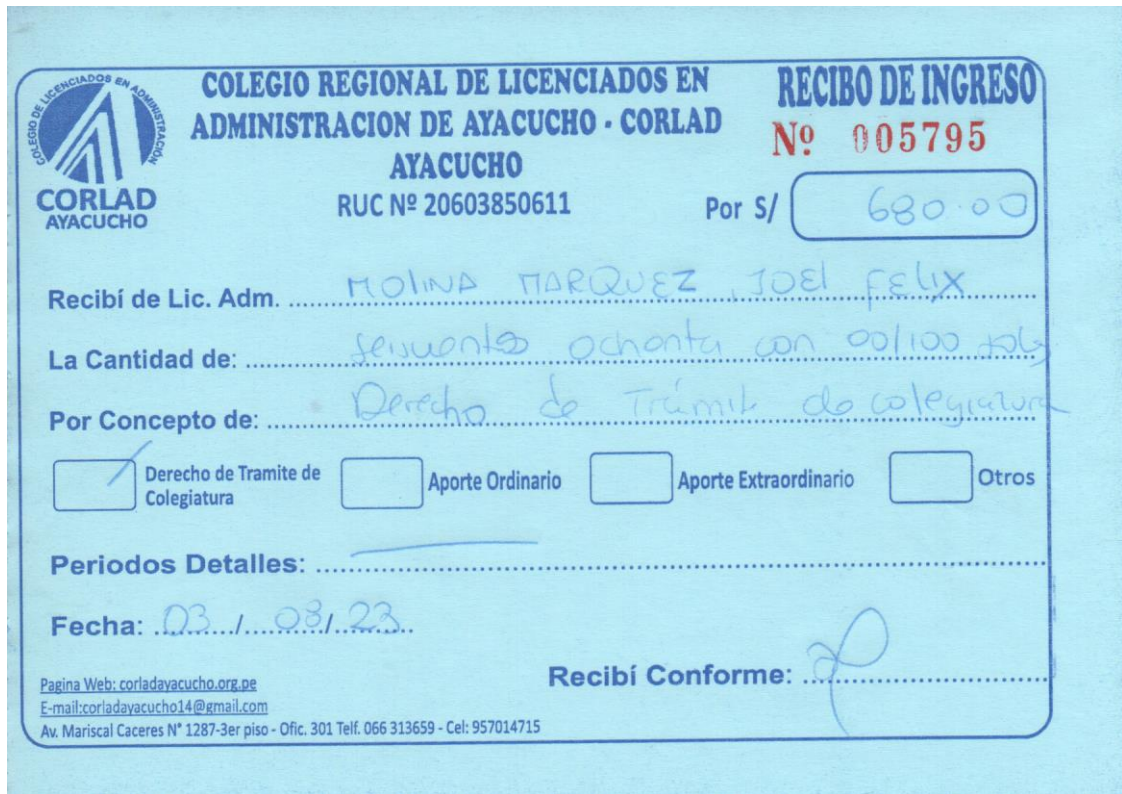 COLEGIO DE LICENCIADOS EN ADMINISTRACIÓN
CORLAD
AYACUCHO
COLEGIO REGIONAL DE LICENCIADOS EN
ADMINISTRACION DE AYACUCHO - CORLAD
AYACUCHO
RUC Nº 20603850611
RECIBO DE INGRESO
Nº 005795
Por S/ 680.00
Recibí de Lic. Adm. MOLINA MARQUEZ, JOEL FELIX
La Cantidad de: ochenta con 00/100 soles
Por Concepto de: Derecho de Trámite de colegiatura
Derecho de Tramite de
Colegiatura
Aporte Ordinario
Aporte Extraordinario
Otros
Periodos Detalles:
Fecha: 03/08/23
Recibí Conforme:
Pagina Web: corladayacucho.org.pe
E-mail:corladayacucho14@gmail.com
Av. Mariscal Caceres N° 1287-3er piso - Ofic. 301 Telf. 066 313659 - Cel: 957014715